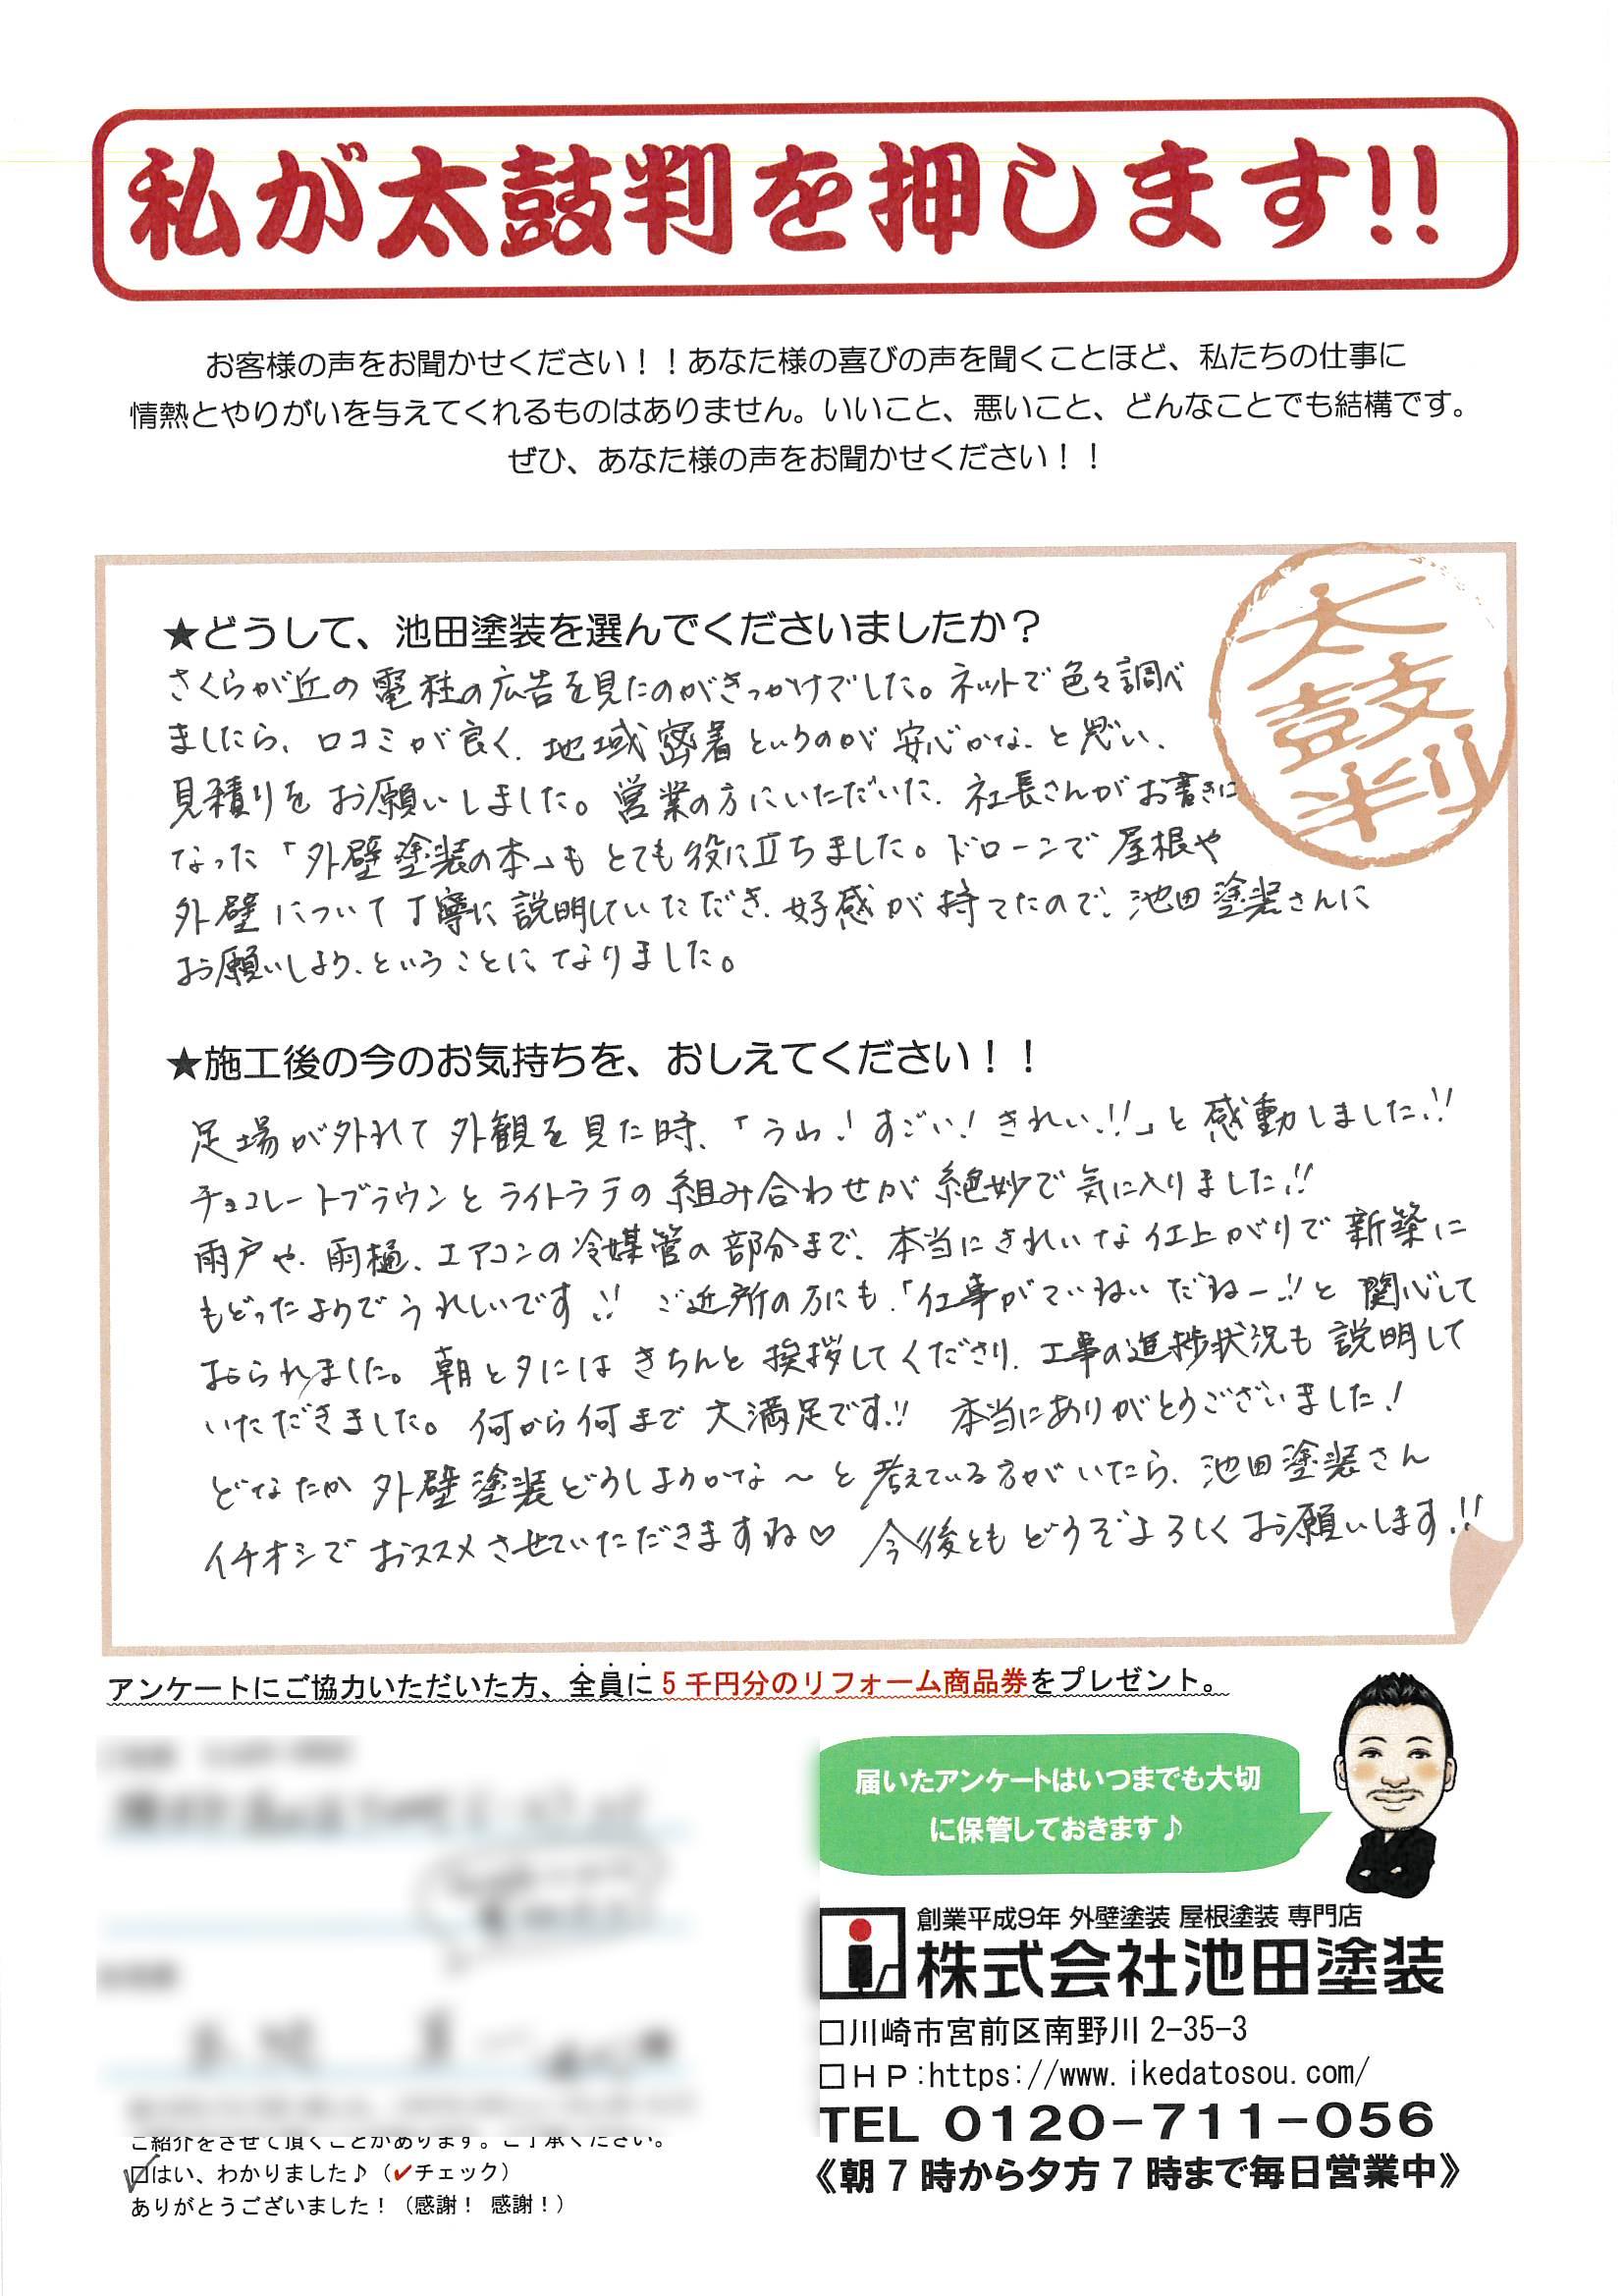 私が太鼓判を押します!!
お客様の声をお聞かせください！！あなた様の喜びの声を聞くことほど、私たちの仕事に
情熱とやりがいを与えてくれるものはありません。いいこと、悪いこと、どんなことでも結構です。
ぜひ、あなた様の声をお聞かせください！！
太鼓判
★どうして、池田塗装を選んでくださいましたか？
さくらが丘の電柱の広告を見たのがきっかけでした。ネットで色々調べ
ましたら、口コミが良く、地域密着というのが安心かな、と思い、
見積りをお願いしました。営業の方にいただいた、社長さんがお書きに
なった「外壁塗装の本」もとても役に立ちました。ドローンで屋根や
外壁について丁寧に説明していただき、好感が持てたので、池田塗装さんに
お願いしよう、ということになりました。
★施工後の今のお気持ちを、おしえてください！！
足場が外れて外観を見た時、「うわ！すごい！きれい!!」と感動しました!!
チョコレートブラウンとライトラテの組み合わせが絶妙で気に入りました!!
雨戸や、雨樋、エアコンの冷媒管の部分まで、本当にきれいな仕上がりで新築に
もどったようでうれしいです!! ご近所の方にも、「仕事がていねいだねー!!と関心して
おられました。朝と夕にはきちんと挨拶してくださり、工事の進捗状況も説明して
いただきました。何から何まで大満足です!! 本当にありがとうございました！
どなたか外壁塗装どうしようかな〜と考えている方がいたら、池田塗装さん
イチオシでおススメさせていただきますね♡ 今後ともどうぞよろしくお願いします!!
アンケートにご協力いただいた方、全員に５千円分のリフォーム商品券をプレゼント。
届いたアンケートはいつまでも大切
に保管しておきます♪
創業平成9年 外壁塗装 屋根塗装 専門店
株式会社池田塗装
□川崎市宮前区南野川2-35-3
□ＨＰ:https://www.ikedatosou.com/
TEL 0120-711-056
《朝７時から夕方７時まで毎日営業中》
ご紹介をさせて頂くことがあります。ご了承ください。
☑はい、わかりました♪（✔チェック）
ありがとうございました！（感謝！ 感謝！）